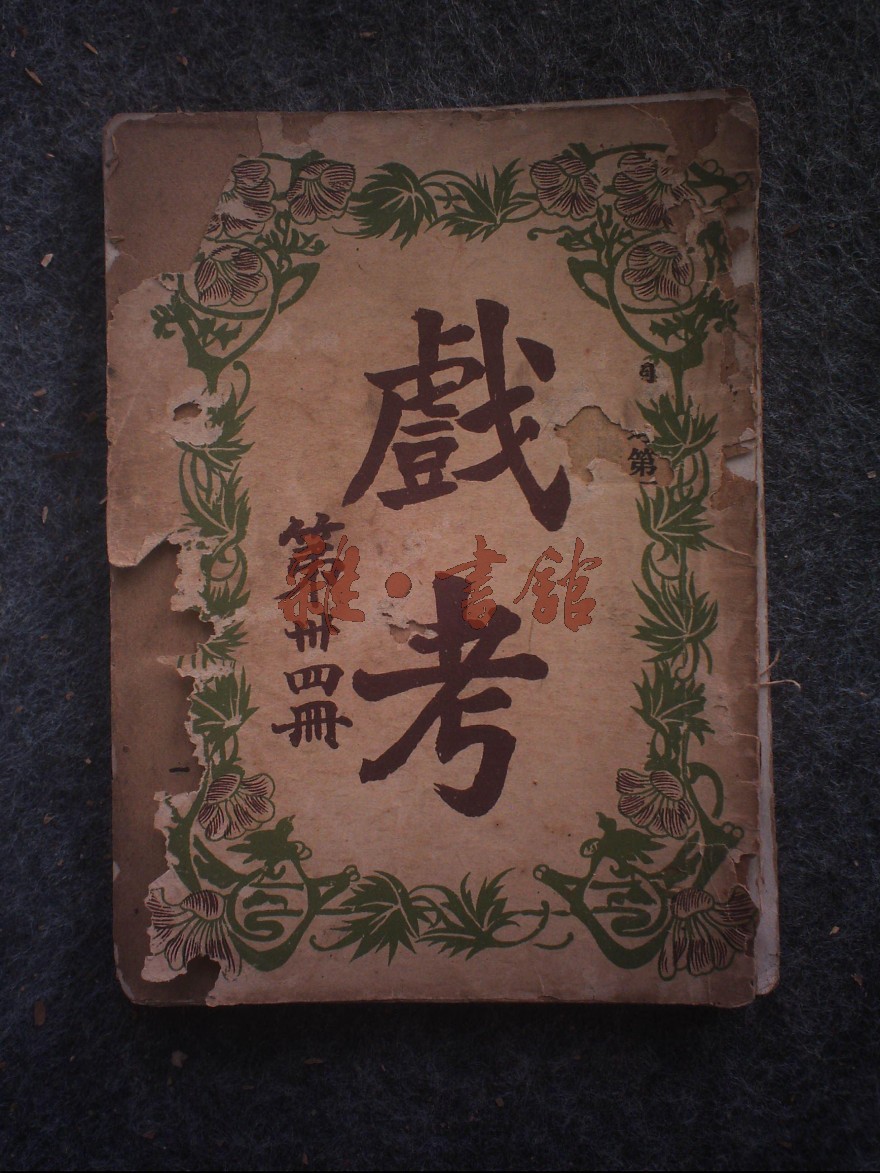 第
戲考
第卅四冊
雜·書館